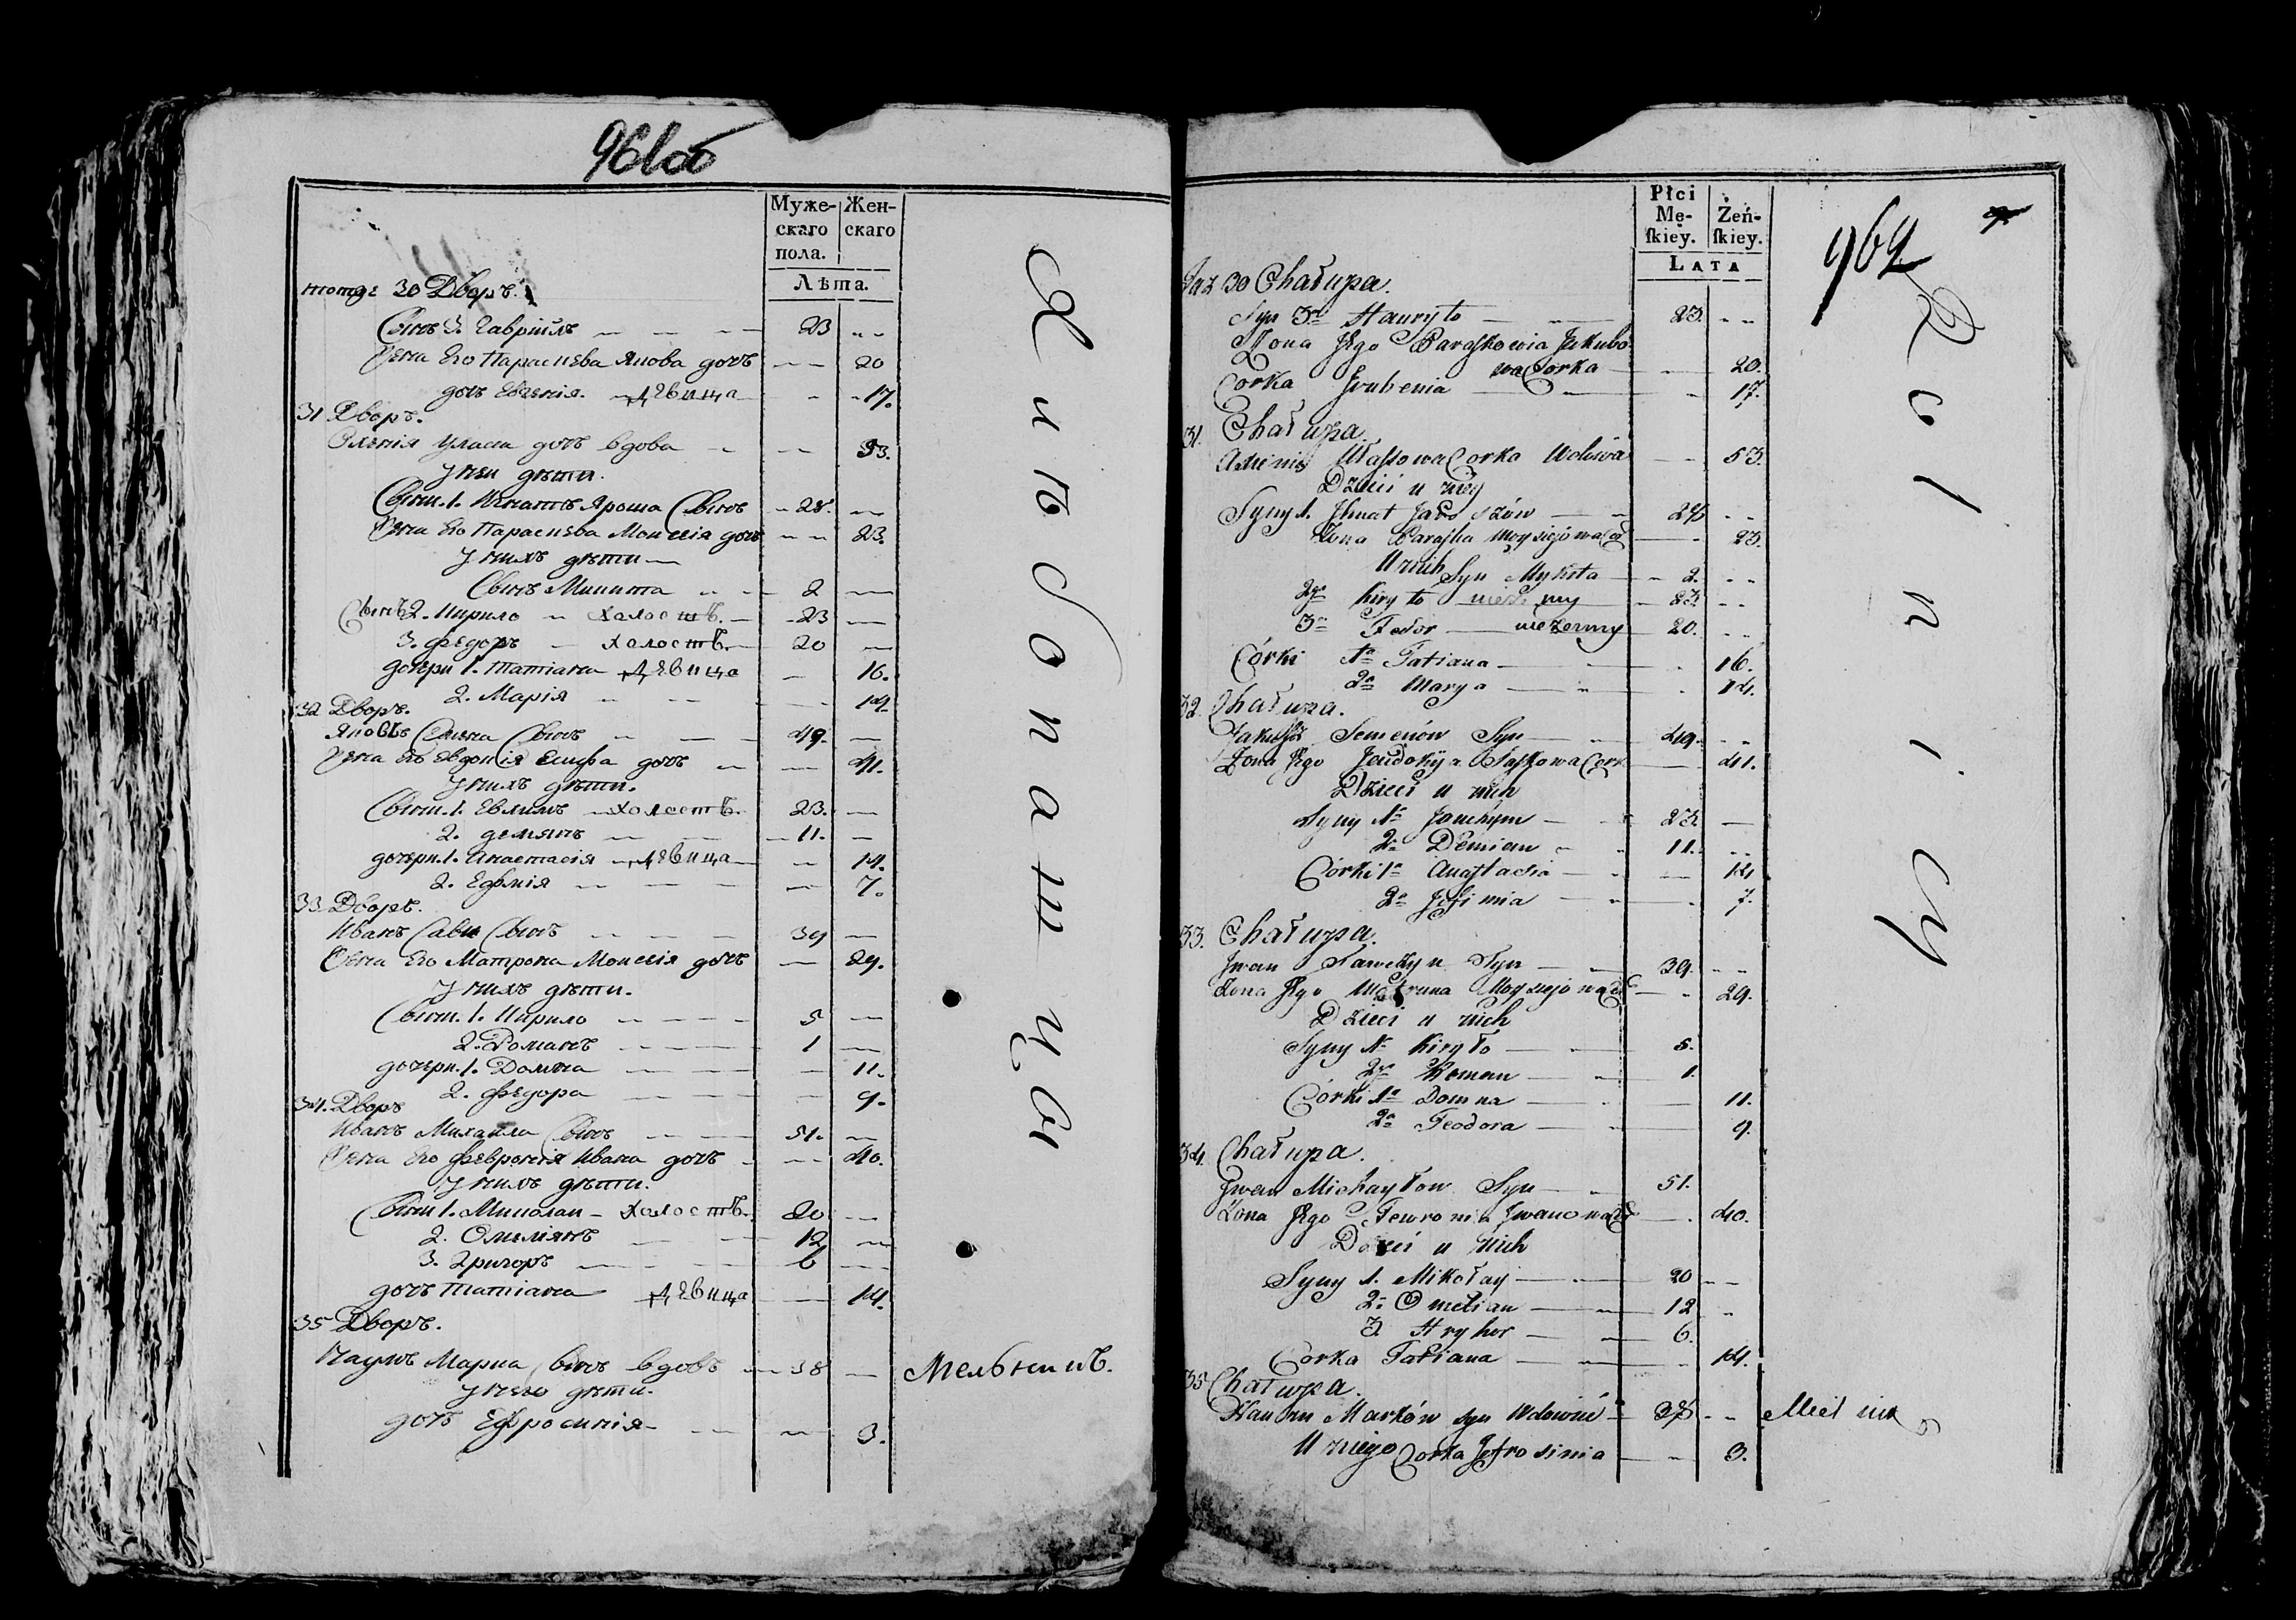 961об
Муже-
скаго
пола.
Жен-
скаго
Лѣта.
тогже 30 Дворъ.
Сынъ 3. Гавріилъ 23
Жена Его Параскева Якова дочь 20
дочь Евгенія. дѣвица 17.
31 Дворъ.
Оленія Уласа дочь вдова 53.
У неи дѣти.
Сыни. 1. Игнатъ Яроша Сынъ 28.
Жена Его Параскева Моисія дочь 23.
У нихъ дѣти
Сынъ Микита 2
Сынъ 2. Кирило холостъ. 23
3. Федоръ холостъ. 20
дочери 1. Татіана дѣвица 16.
2. Марія 14.
32 Дворъ.
Яковъ Семена Сынъ 49.
Жена Его Евдокія Есифа дочь 41.
У нихъ дѣти.
Сыни. 1. Евхимъ холостъ. 23.
2. демянъ 11.
дочери. 1. Анастасія дѣвица 14.
2. Ефимія 7.
33 Дворъ.
Иванъ Сави Сынъ 39
Жена Его Матрона Моисія дочь 29.
У нихъ дѣти.
Сыни. 1. Кирило 5
2. Романъ 1
дочери. 1. Домна 11.
2. Федора 9.
34. Дворъ
Иванъ Михаила Сынъ 51.
Жена Его Февронія Ивана дочь 40.
У нихъ дѣти.
Сыни 1. Миколаи холостъ. 20
2. Омелянъ 12
3. Григоръ 6
дочь Татіана дѣвица 14.
35 Дворъ.
Наумъ Марка Сынъ вдовъ 38
У него дѣти.
дочь Ефросинія 3.
Хлѣбопашцы
Мельникъ.
Płci
Mę-
ſkiey.
Żeń-
ſkiey.
LATA
962
Taż 30 Chałupa.
Syn 3. Hauryło 23.
Żona Jego Paraſkowia Jakubo
wa Corka 20.
Corka Jeuhenia 17.
31. Chałupa
Ułaſowa Corka Wdowa 53.
Dzieci u niey
Syny 1. Ihnat Jaroszów 28
Żona Paraſka Moysiejowa Cor 23.
U nich Syn Mykita 2.
2. Kiryło nieżenny 23.
3. Fedor nieżenny 20.
Córki 1a Tatiana 16.
2a Marya 14.
32. Chałupa.
Jakub Semenów Syn 49.
Żona Jego Jeudokija Cork 41.
Dzieci u nich
Syny 1. Jeuchym 23.
2. Demian 11.
Córki 1a Anaſtasia 14
2a Jefimia 7.
33. Chałupa.
Iwan Sawczyn Syn 39.
Żona Jego Matruna Moysiejowa 29.
Dzieci u nich
Syny 1. Kiryło 5.
2. Roman 1.
Córki 1a Domna 11.
2a Feodora 9.
34. Chałupa.
Iwan Michayłow Syn 51.
Żona Jego Fewronia Iwanowa 40.
Dzieci u nich
Syny 1. Mikołay 20
2. Omelian 12
3. Hryhor 6.
Corka Tatiana 14.
35 Chałupa.
Naum Marków Syn Wdowiec 38
U niego Corka Jefrosinia 3.
Rolnicy
Mielnik